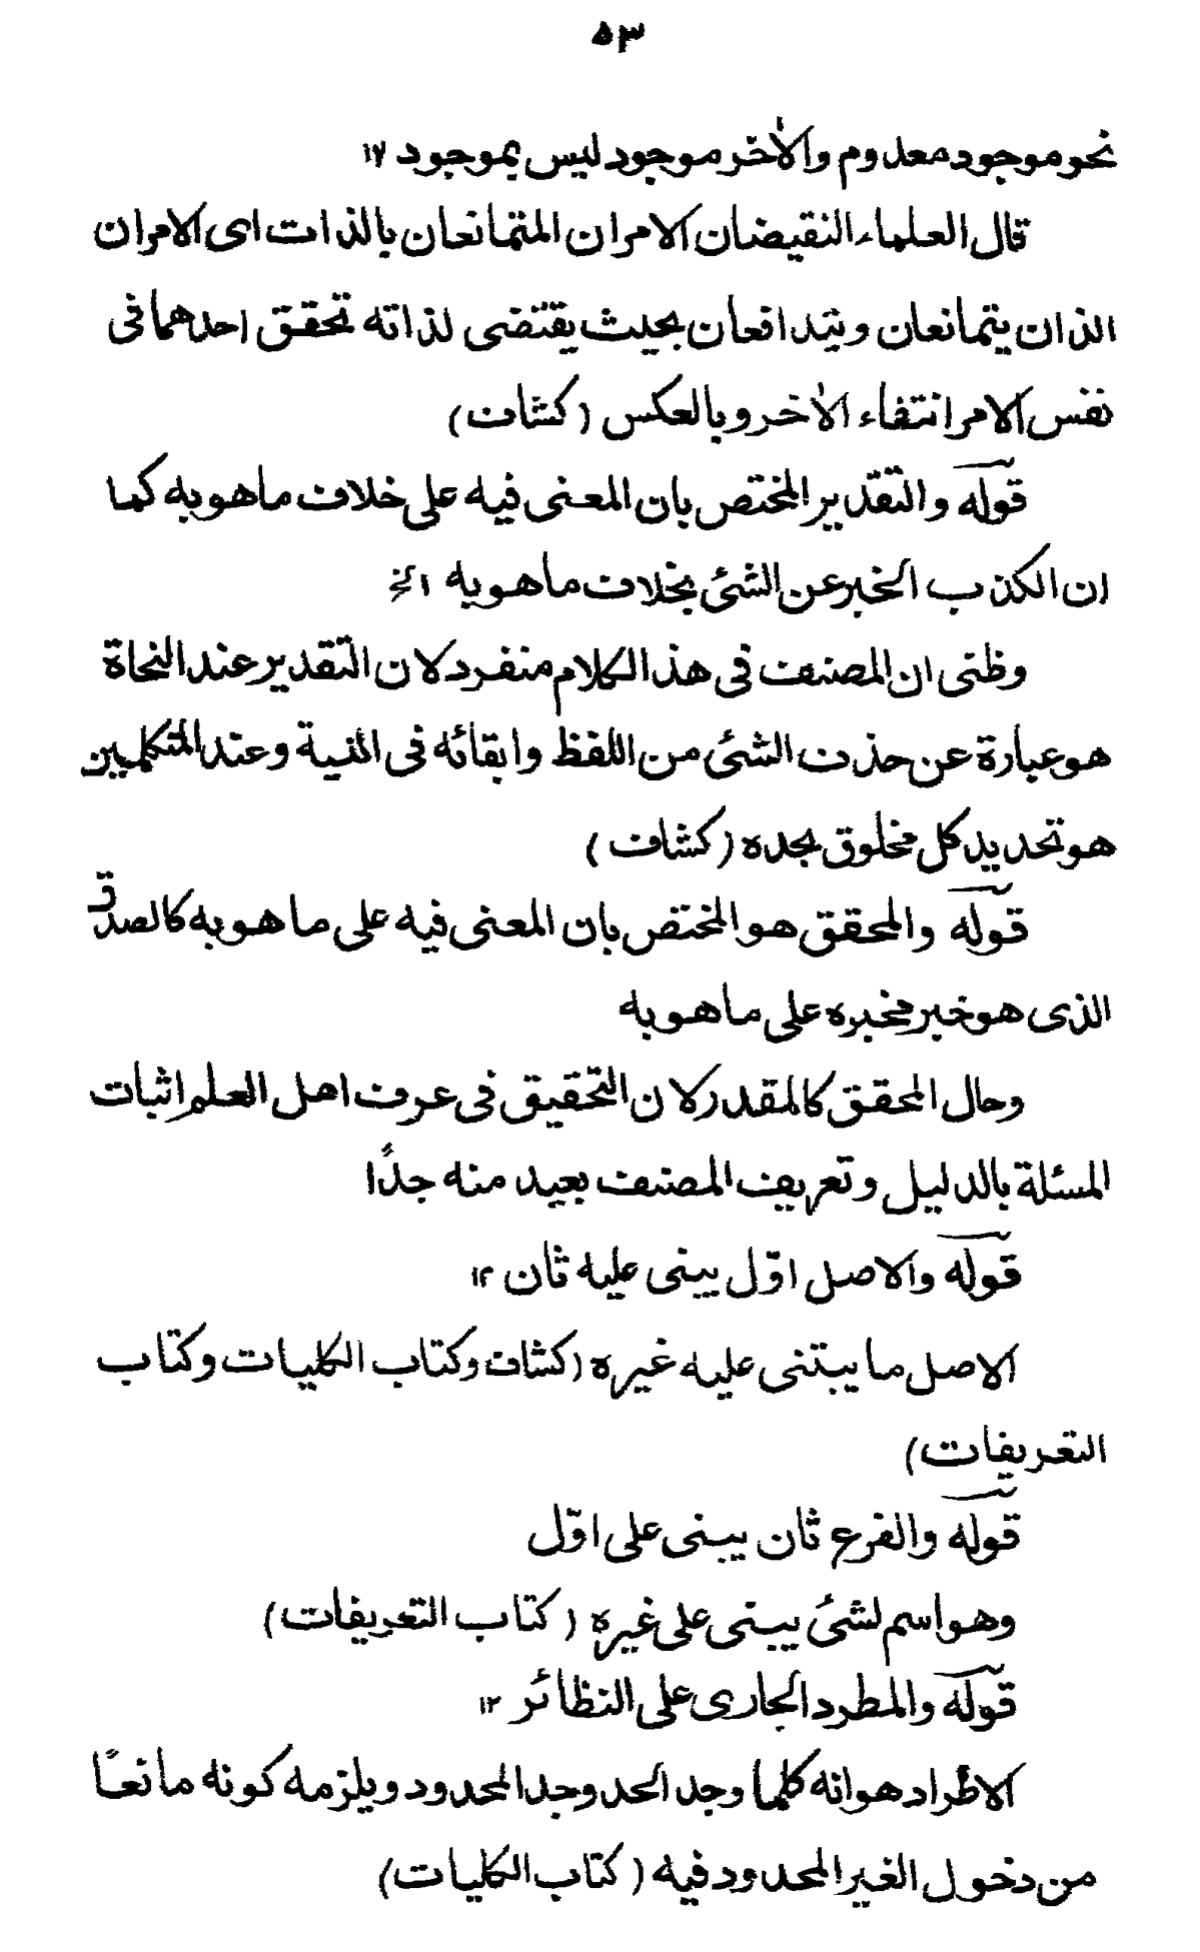 ٥٣
نحو موجود معدوم والاٰخر موجود ليس بموجود ١٢
قال العلماء النقيضان الامران المتمانعان بالذات اى الامران
الذان يتمانعان ويتدافعان بحيث يقتضى لذاته تحقق احدهما فى
نفس الامر انتفاء الاٰخر وبالعكس (كشاف)
قوله والتقدير المختص بان المعنى فيه على خلاف ماهوبه كما
ان الكذب الخبر عن الشئ بخلاف ماهوبه الخ
وظنى ان المصنف فى هذا الكلام منفرد لان التقدير عند النحاة
هو عبارة عن حذف الشئ من اللفظ وابقائه فى النية وعند المتكلمين
هو تحديد كل مخلوق بحده (كشاف)
قوله والمحقق هو المختص بان المعنى فيه على ماهوبه كالصدق
الذى هو خبر مخبره على ماهوبه
وحال المحقق كالمقدر لان التحقيق فى عرف اهل العلم اثبات
المسئلة بالدليل وتعريف المصنف بعيد منه جدًا
قوله والاصل اوّل يبنى عليه ثان ١٢
الاصل ما يبتنى عليه غيره (كشاف وكتاب الكليات وكتاب
التعريفات)
قوله والفرع ثان يبنى على اوّل
وهو اسم لشئ يبنى على غيره (كتاب التعريفات)
قوله والمطرد الجارى على النظائر ١٢
الاطّراد هو انه كلما وجد الحد وجد المحدود ويلزمه كونه مانعًا
من دخول الغير المحدود فيه (كتاب الكليات)